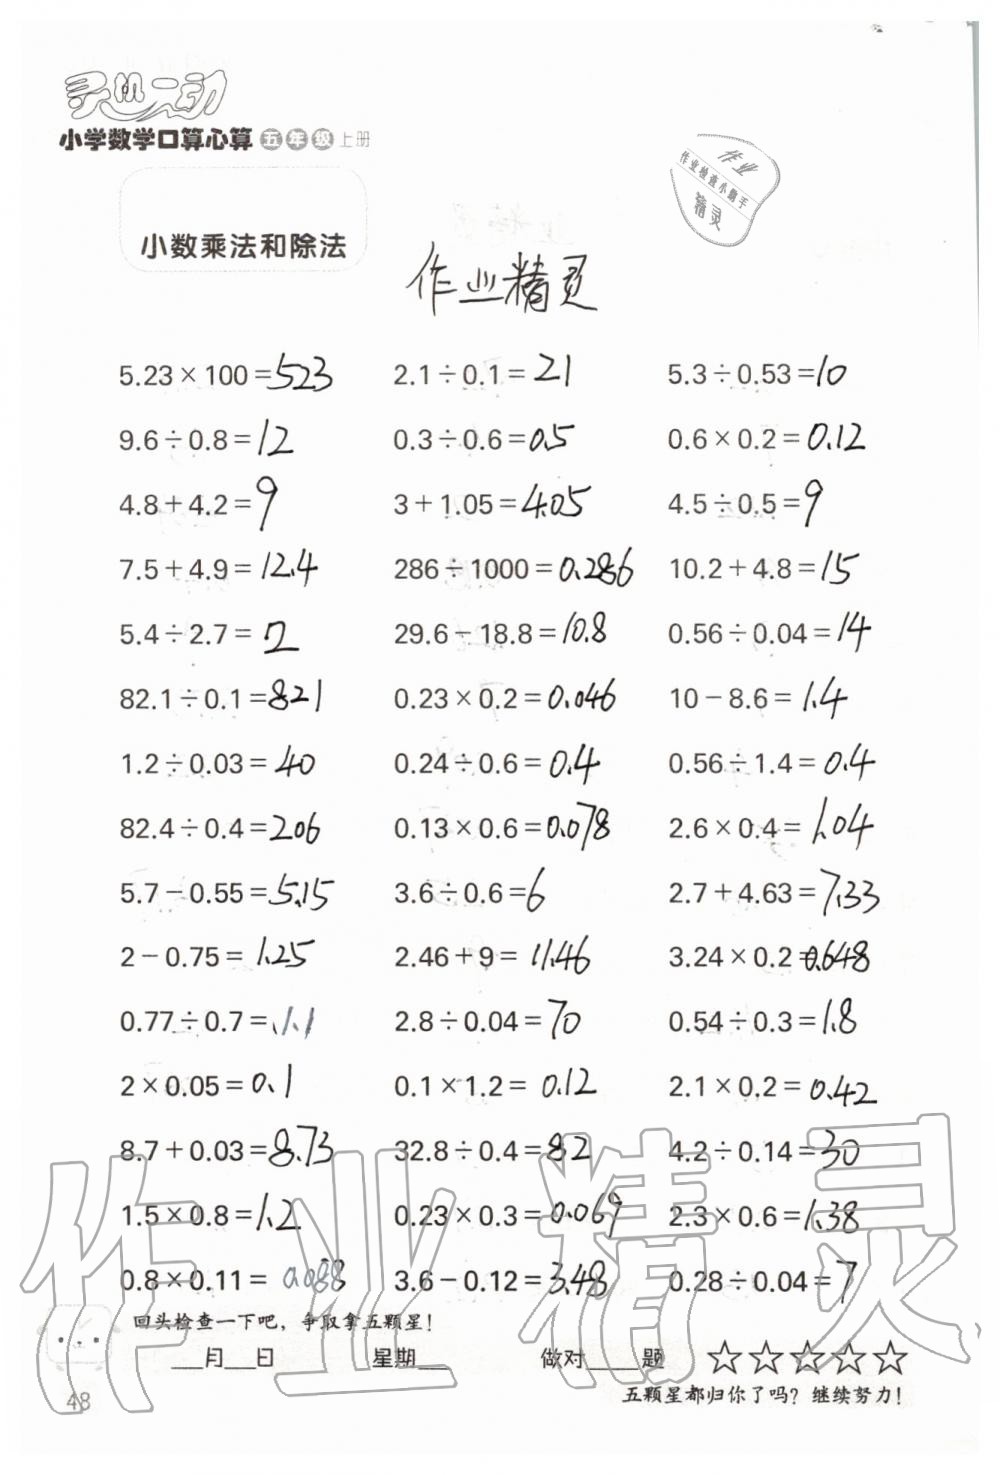 灵机一动
小学数学口算心算 五年级 上册
作业
作业检查小助手
精灵
小数乘法和除法
作业精灵
5.23×100=523 2.1÷0.1=21 5.3÷0.53=10
9.6÷0.8=12 0.3÷0.6=0.5 0.6×0.2=0.12
4.8+4.2=9 3+1.05=4.05 4.5÷0.5=9
7.5+4.9=12.4 286÷1000=0.286 10.2+4.8=15
5.4÷2.7=2 29.6-18.8=10.8 0.56÷0.04=14
82.1÷0.1=821 0.23×0.2=0.046 10-8.6=1.4
1.2÷0.03=40 0.24÷0.6=0.4 0.56÷1.4=0.4
82.4÷0.4=206 0.13×0.6=0.078 2.6×0.4=1.04
5.7-0.55=5.15 3.6÷0.6=6 2.7+4.63=7.33
2-0.75=1.25 2.46+9=11.46 3.24×0.2=0.648
0.77÷0.7=1.1 2.8÷0.04=70 0.54÷0.3=1.8
2×0.05=0.1 0.1×1.2=0.12 2.1×0.2=0.42
8.7+0.03=8.73 32.8÷0.4=82 4.2÷0.14=30
1.5×0.8=1.2 0.23×0.3=0.069 2.3×0.6=1.38
0.8×0.11=0.088 3.6-0.12=3.48 0.28÷0.04=7
作业精灵
回头检查一下吧，争取拿五颗星！
___月___日 星期___ 做对____题 ☆☆☆☆☆
五颗星都归你了吗？继续努力！
48